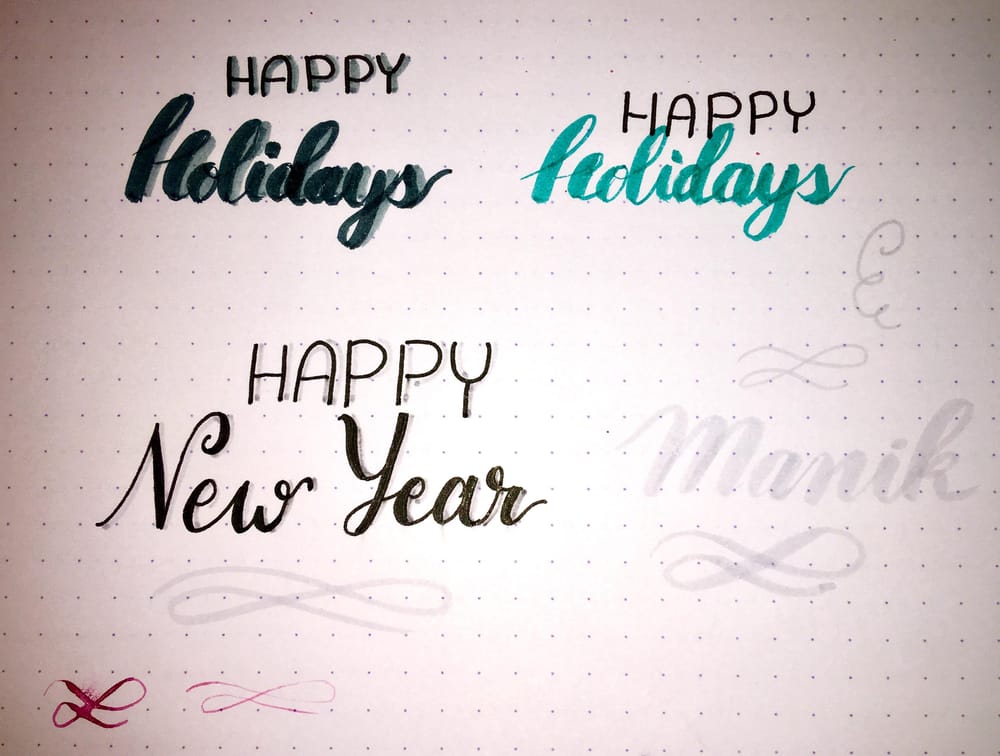 HAPPY
Holidays
HAPPY
Holidays
HAPPY
New Year
Manik